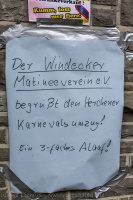 Komm tanz
Der Windecker
Matineeverein e.V
begrüßt den Herchener
Karnevalsumzug!
Ein 3-faches Alaaf!